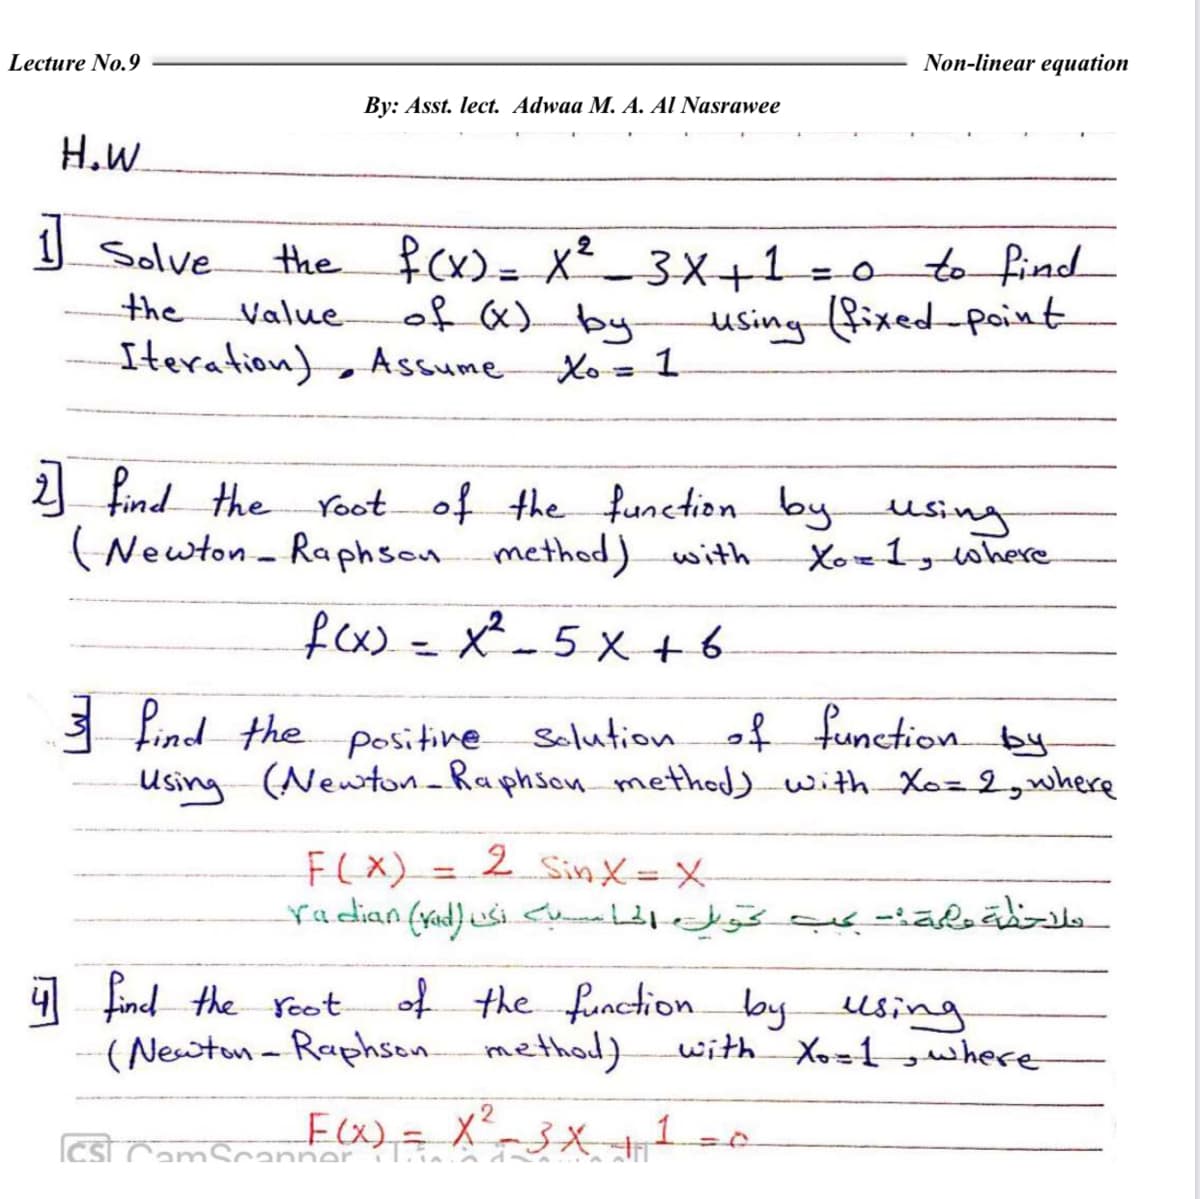 Lecture No.9
Non-linear equation
By: Asst. lect. Adwaa M. A. Al Nasrawee
H.W
1] Solve the f(x) = x² - 3x + 1 = 0 to find
the value of (x) by using (fixed-point
Iteration), Assume X₀ = 1
2] find the root of the function by using
(Newton - Raphson method) with X₀=1, where
f(x) = x² - 5x + 6
3] find the positive solution of function by
using (Newton - Raphson method) with X₀=2, where
F(x) = 2 sin x = x
ملاحظة مهمة :- يجب تحويل الحاسبة الى radian (rad)
4] find the root of the function by using
(Newton - Raphson method) with X₀=1, where
F(x) = x² - 3x + 1 = 0
CS CamScanner